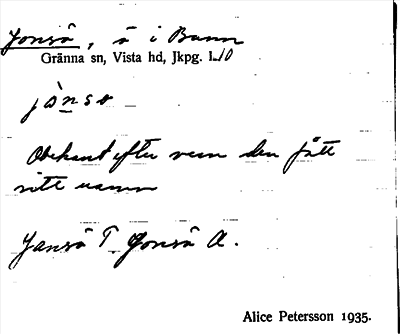 Jonså, å i Bunn
Gränna sn, Vista hd, Jkpg. l.
jònsa
Obekant efter vem den fått
sitt namn
Jonså T Jonså A.
Alice Petersson 1935.